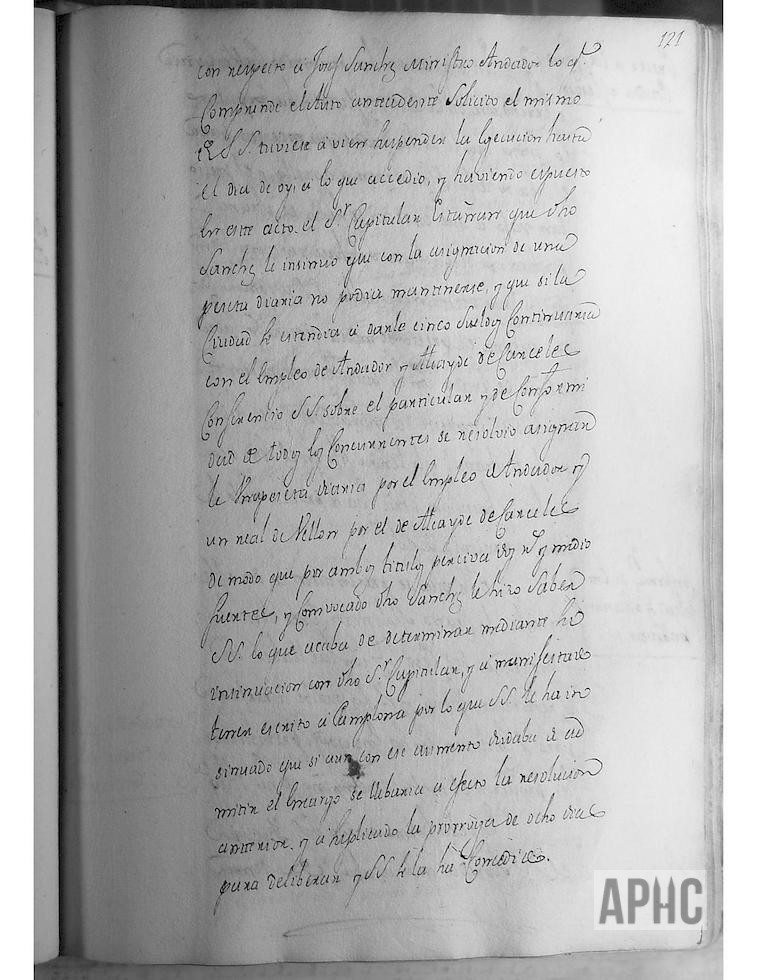 121
con respecto a Josef Sanchez Ministro Andador lo q.e
Comprende el Auto antecedente Solicito el mismo
a S.S. tuviese a vien suspender la Egecucion hasta
el dia de oy, a lo que accedio, y haviendo espuesto
en este acto el S.r Capitular que dho
Sanchez le insinuo que con la asignacion de una
peseta diaria no podia mantenerse, y que si la
Ciudad se estendia a darle cinco Sueldos Continuaria
con el Empleo de Andador y Alcayde de Carceles
Conferencio S.S. sobre el particular y de Conformi
dad de todos los Concurrentes se resolvio asignar
le una peseta diaria por el Empleo de Andador y
un real de Vellon por el de Alcayde de Carceles
de modo que por ambos titulos perciva dos r.s y medio
fuertes, y Comvocado dho Sanchez le hizo Saber
S.S. lo que acaba de determinar mediante su
insinuacion con dho S.r Capitular, y a manifestado
tener escrito a Camplona por lo que S.S. le ha in
sinuado que si aun con ese aumento dudaba de ad
mitir el Encargo se llebaria a efecto la resolucion
anterior, y a suplicado la prorroga de ocho dias
para deliberar y S.S. se la ha Concedido.
APHC